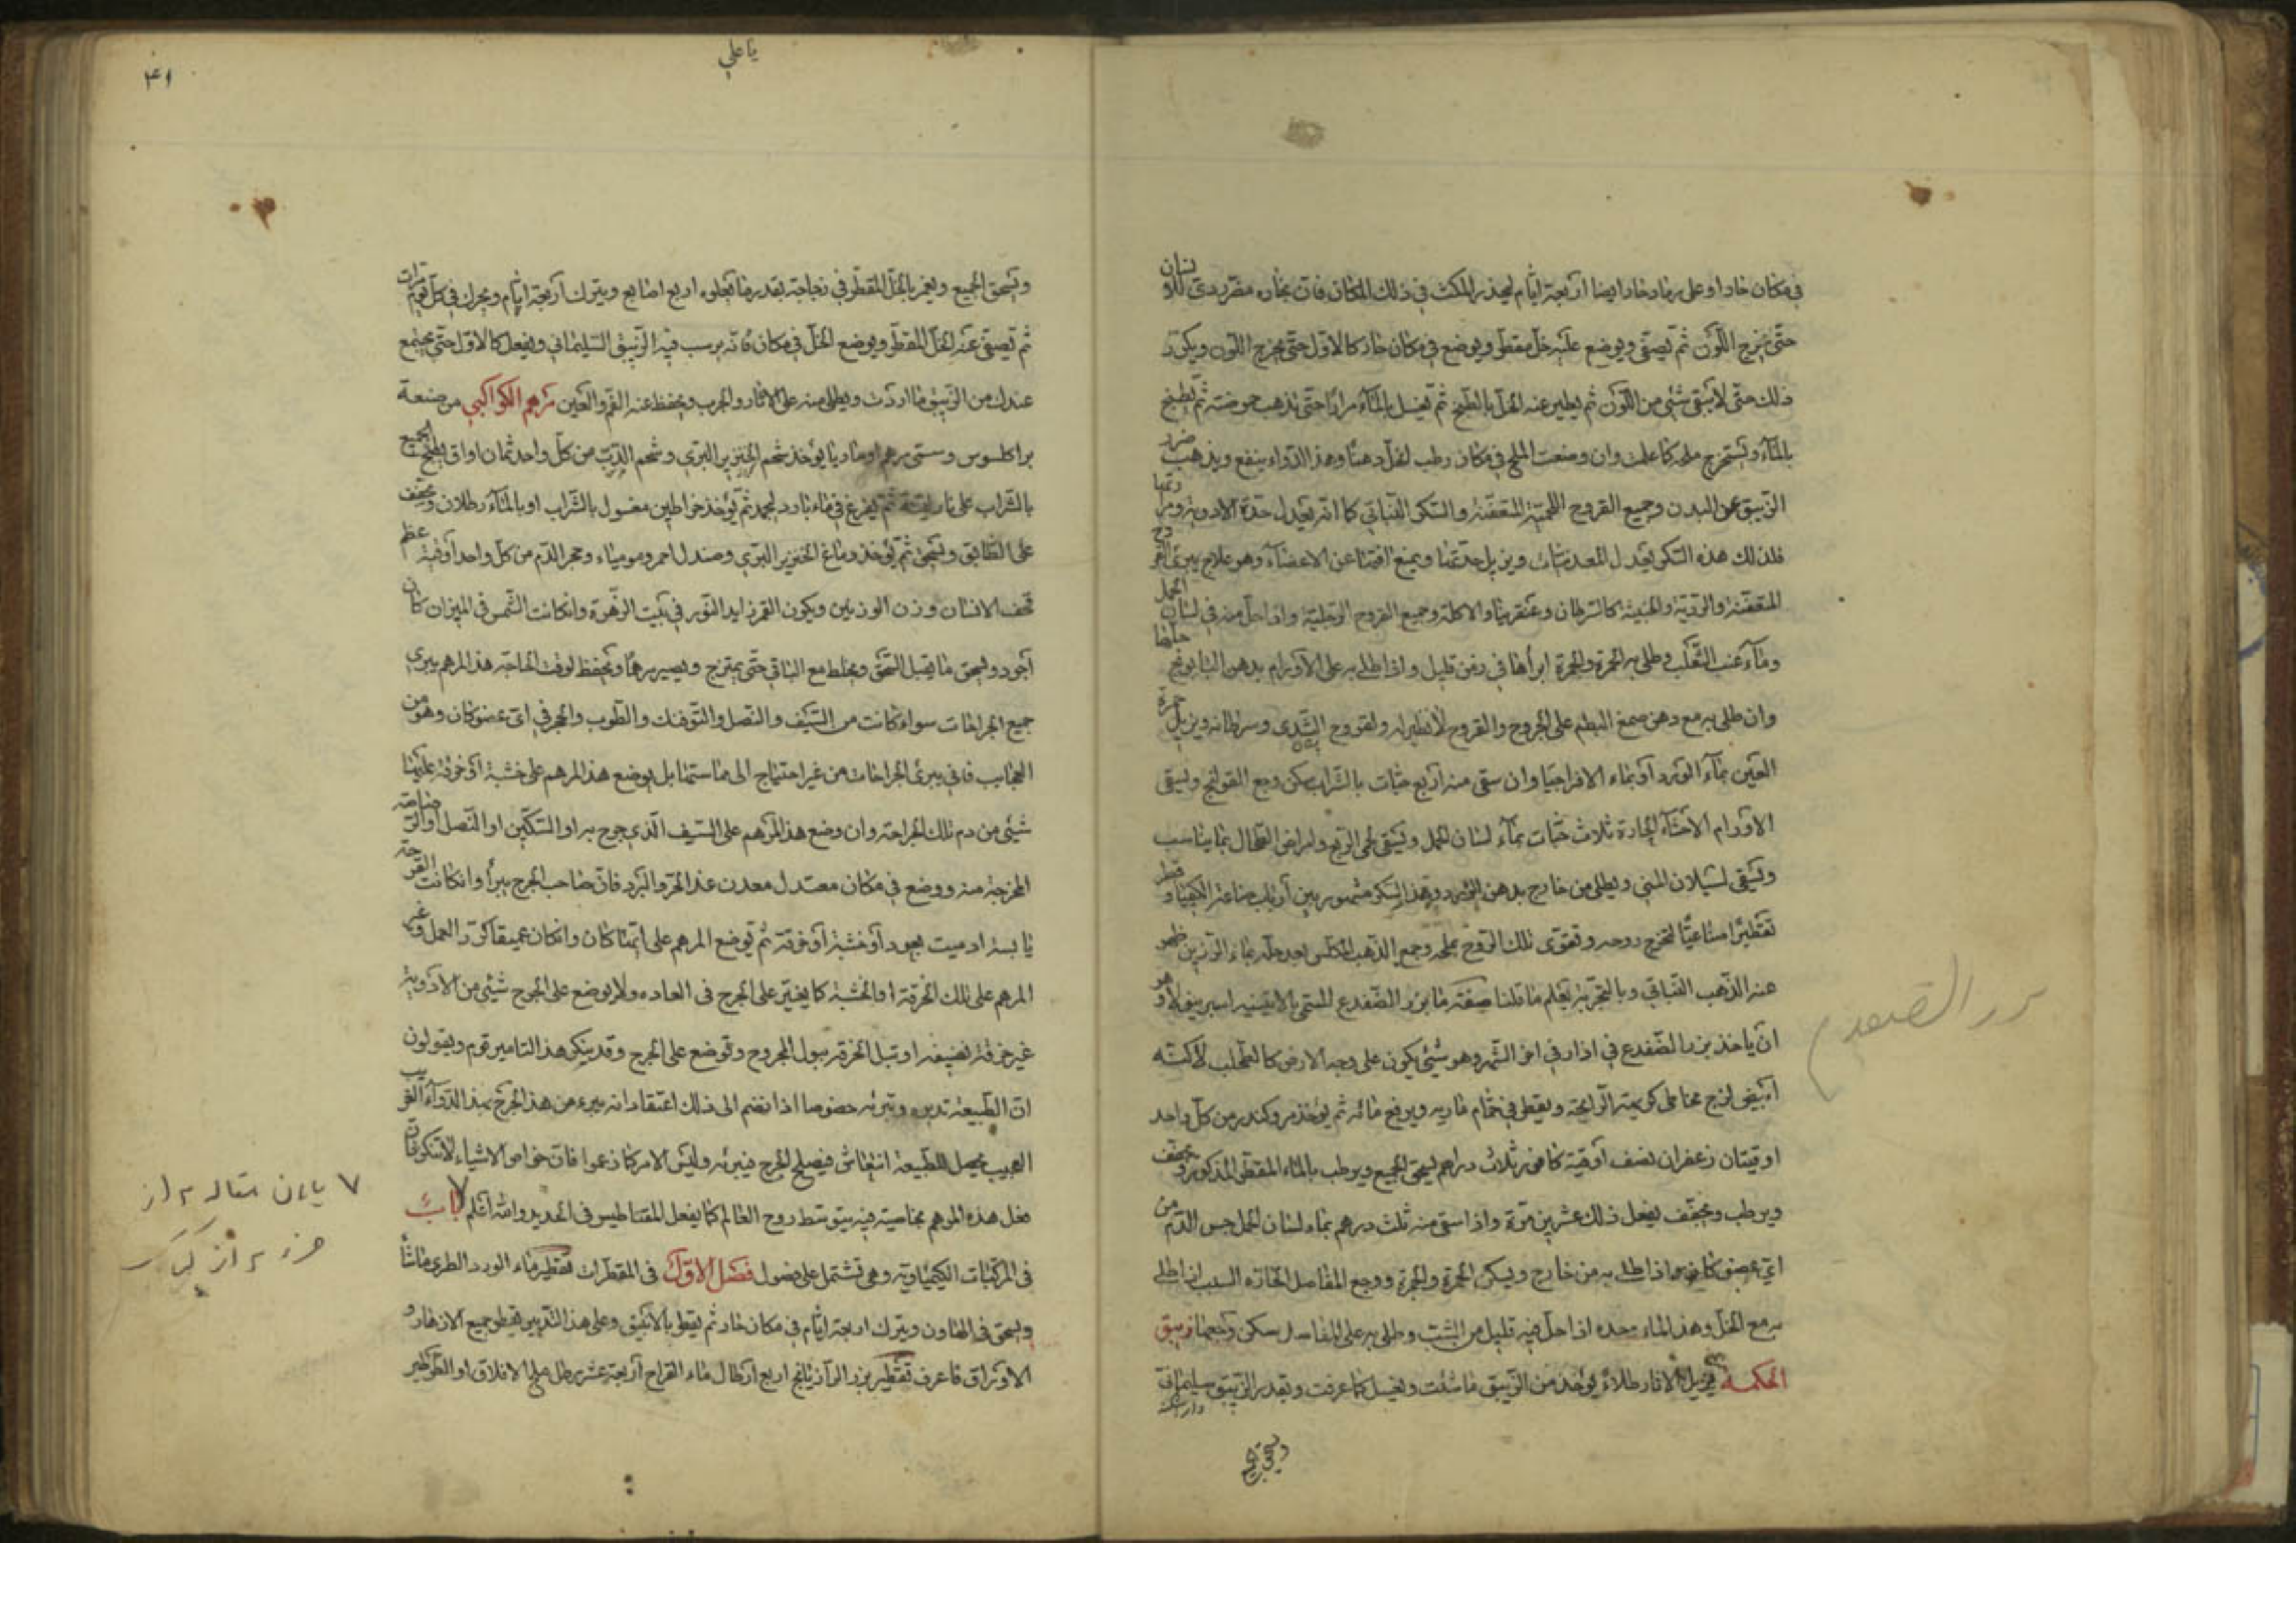 في مكان حار او على رماد حار ايضا اربعة ايام ليحذر المكث في ذلك المكان فان بخاره مضر ردي للاسنان
حتى يخرج اللون ثم يصفى ويوضع عليه خل مقطر ويوضع في مكان حار كالاول حتى يخرج اللون ويكرر
ذلك حتى لا يبقى شيء من اللون ثم يطير عنه الخل بالطبخ ثم يغسل بالماء مرارا حتى تذهب حموضته ثم يطبخ
بالماء ويستخرج ملحه كما علمت وان وضعت الملح في مكان رطب انحل دهنا وهذا الدواء ينفع ويذهب ضرر
الزيبق عن البدن وجميع القروح الخبيثة المتعفنة والسكر النباتي كما انه يعدل حدة الادوية
فلذلك هذه السكر يعدل المعدنيات ويزيل حدتها ويمنع افتها عن الاعضاء وهو علاج يبرئ القروح
المتعفنة والردية والخبيثة كالسرطان وعنقرينا والاكلة وجميع القروح الرجلية واذا حل منه في لسان الحمل
وماء عنب الثعلب وطلي به الحمرة والجمرة ابرأها في زمن قليل واذا طلي به على الاورام بدهن البابونج حللها
وان طلي به مع دهن صمغ البطم على الجروح والقروح لا نظير له ولقروح الثدي وسرطانه ويزيل حمرة
العين بماء الورد او بماء الافراجيا وان سقي منه اربع حبات بالشراب سكن وجع القولنج ويسقى
الاورام الاحشاء الحارة ثلاث حبات بماء لسان الحمل ويسقى لحمى الربع ولمراض الطحال بما يناسب
ويسقى لسيلان المني ويطلى من خارج بدهن الورد وهذا السكر مشهور بين ارباب صناعة الكيميا وقطر
تقطيرا صناعيا لتخرج روحه وتقوى تلك الروح بملحه وجمع الذهب المكلس بعد حله بماء الرزين ظهر
عنه الذهب النباتي وبالتجربة يعلم ما قلنا صفة ما بزر الضفدع المسمى بالاتينيه اسبرنيوله وهو
ان ياخذ بزر الضفدع في اذار في اخر الشهر وهو شيء يكون على وجه الارض كالطحلب لاكنه
ابيض لزج مخاطي كريه الرايحة ويقطر في حمام ماريه ويرفع مائه ثم يوخذ مر وكندر من كل واحد
اوقيتان زعفران نصف اوقية كافور ثلاث دراهم يسحق الجميع ويرطب بالماء المقطر المذكور ويجفف
ويرطب ويجفف يفعل ذلك عشرين مرة واذا سقي منه ثلث درهم بماء لسان الحمل حبس الدم من
اي عضو كان واذا طلي به من خارج ويسكن الحمرة والجمرة ووجع المفاصل الحارة السبب اذا طلي
به مع الخل وهذا الماء وحده اذا حل فيه قليل من الشب وطلي به على المفاصل سكن وجعها زيبق
الحكمة يزيل الاثار طلاء يوخذ من الزيبق ما شئت ويغسل كما عرفت وبقدر الزيبق سليماني
ويسحق الجميع
بزر الضفدع
يا علي
٤١
ويسحق الجميع ويغمر بالخل المقطر في زجاجة بقدر ما يعلوه اربع اصابع ويترك اربعة ايام ويحرك في كل يوم مرات
ثم يصفى عنه الخل المقطر ويوضع الخل في مكان فانه يرسب فيه الزيبق السليماني ويفعل كالاول حتى يجتمع
عندك من الزيبق ما اردت ويطلى منه على الاثار والجرب ويحفظ عنه الفم والعين مرهم الكواكبي من صنعة
براكلسوس وسمى مرهم اوماريا يوخذ شحم الخنزير البري وشحم الدب من كل واحد ثمان اواق يطبخ الجميع
بالشراب على نار لينة ثم يفرغ في ماء بارد ليجمد ثم يوخذ خراطين مغسول بالشراب او بالماء رطلان ويجفف
على الطابق ويسحق ثم يوخذ دماغ الخنزير البري وصندل احمر ومومياء وحجر الدم من كل واحد اوقية عظم
قحف الانسان وزن الوزنين ويكون القمر زايد النور في بيت الزهرة وان كانت الشمس في الميزان كان
اجود ويسحق ما يقبل السحق ويخلط مع الباقي حتى يمتزج ويصير مرهما ويحفظ لوقت الحاجة هذا المرهم يبرئ
جميع الجراحات سواء كانت من السيف والنصل والتوفنك والطوب والحجر في اي عضو كان وهو من
العجايب فانه يبرئ الجراحات من غير احتياج الى مماستها بل يوضع هذا المرهم على خشبة او خرقة عليها
شيء من دم تلك الجراحة وان وضع هذا المرهم على السيف الذي جرح به او السكين او النصل او الرصاصة
المخرجة منه ووضع في مكان معتدل معدن عند الحر والبرد فان صاحب الجرح يبرأ وان كانت القرحة
يابسة ادميت بعود او خشبة او خرقة ثم توضع المرهم على ايها كان وان كان عميقا كرر العمل وغير
المرهم على تلك الخرقة او الخشبة كما يغير على الجرح في العاده ولا يوضع على الجرح شيئ من الادوية
غير خرقة نضيفه او تبل الخرقة ببول المجروح وتوضع على الجرح وقد ينكر هذا التاثير قوم ويقولون
ان الطبيعة تدبره وتبرئه خصوصا اذا انضم الى ذلك اعتقاد انه يبرء من هذا الجرح بهذا الدواء الغريب
العجيب يحصل للطبيعة انتعاش فيصلح الجرح فيبرئه وليس الامر كما زعموا فان خواص الاشياء لا تنكر فان
فعل هذه المرهم بخاصية فيه بتوسط روح العالم كما يفعل المقناطيس في الحديد والله اعلم باب
في المركبات الكيمياوية وهي تشتمل على فصول فصل الاول في المقطرات تقطير ماء الورد الطري ما شاء
ويسحق في الهاون ويترك اربعة ايام في مكان حار ثم يقطر بالانبيق وعلى هذا التدبير يقطر جميع الازهار و
الاوراق فاعرف تقطير بزر الرازيانج اربع ارطال ماء القراح اربعة عشر رطل ملح الافلاق او الطرطير
٧ پایان مقاله ٢ از